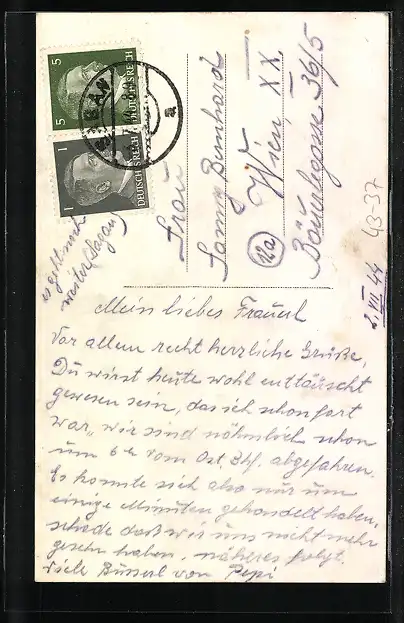 5
5
DEUTSCHES REICH
1
DEUTSCHES REICH
es geht nach
weiter Sagan
Frau
Bernhard
Wien, XX.
(12a)
36/5
43-37
2. VII 44
Mein liebes Frauerl
Vor allem recht herzliche Grüße,
Du wirst heute wohl enttäuscht
gewesen sein, das ich schon fort
war, wir sind nähmlich schon
um 6h vom Ost. Bhf. abgefahren.
Es konnte sich also nur um
einige Minuten gehandelt haben,
schade daß wir uns nicht mehr
gesehn haben. näheres folgt.
Viele Busserl von Pepi